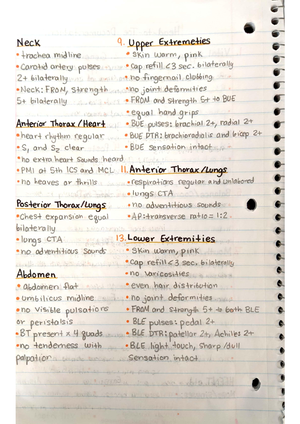 Neck
• trachea midline
• Carotid artery pulses
2+ bilaterally
• Neck: FROM, Strength
5+ bilaterally
Anterior Thorax/Heart
• heart rhythm regular
• S1 and S2 clear
• no extra heart sounds heard
• PMI at 5th ICS and MCL
• no heaves or thrills
Posterior Thorax/Lungs
• Chest expansion equal
bilaterally
• lungs CTA
• no adventitious sounds
Abdomen
• abdomen flat
• umbilicus midline
• no visible pulsations
or peristalsis
• BT present x 4 quads
• no tenderness with
palpation
9. Upper Extremeties
• Skin warm, pink
• cap refill <3 sec. bilaterally
• no fingernail clubbing
• no joint deformities
• FROM and strength 5+ to BUE
• equal hand grips
• BUE pulses: brachial 2+, radial 2+
• BUE DTR: brachioradialis and bicep 2+
• BUE sensation intact
11. Anterior Thorax/Lungs
• respirations regular and unlabored
• lungs CTA
• no adventitious sounds
• AP:transverse ratio = 1:2
13. Lower Extremities
• Skin warm, pink
• Cap refill <3 sec. bilaterally
• no varicosities
• even hair distribution
• no joint deformities
• FROM and strength 5+ to both BLE
• BLE pulses: pedal 2+
• BLE DTR: patellar 2+, Achiles 2+
• BLE light touch, sharp/dull
Sensation intact